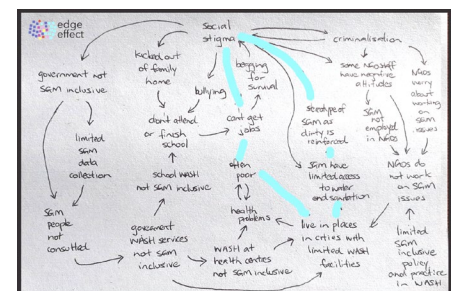 edge
effect
social
stigma
criminalisation
kicked out
of family
home
begging
for
survival
some NGO staff
have negative
attitudes
NGOs
worry
about
working
on
SGM
issues
government not
SGM inclusive
bullying
don't attend
or finish
school
can't get
jobs
stereotype of
SGM as
dirty is
reinforced
SGM
not
employed
in NGOs
limited
SGM
data
collection
school WASH
not SGM inclusive
often
poor
SGM have
limited access
to water
and sanitation
NGOs do
not work
on SGM
issues
SGM
people
not
consulted
government
WASH services
not SGM
inclusive
health
problems
WASH at
health centres
not SGM inclusive
live in places
in cities with
limited WASH
facilities
limited
SGM
inclusive
policy
and practice
in WASH